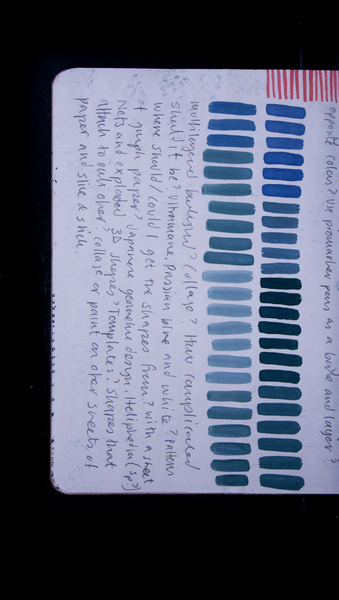 opposite colours? Use promarker pens as a base and layer?
multilayered backgrnd? Collage? How complicated
should it be? Ultramarine, Prussian blue and white? Patterns
where should/could I get the shapes from? With a sheet
of graph paper? Japanese geometric design. (sp?)
Nets and exploded 3D shapes? Templates? Shapes that
attach to each other? Collage or paint on other sheets of
paper and slice & stick.